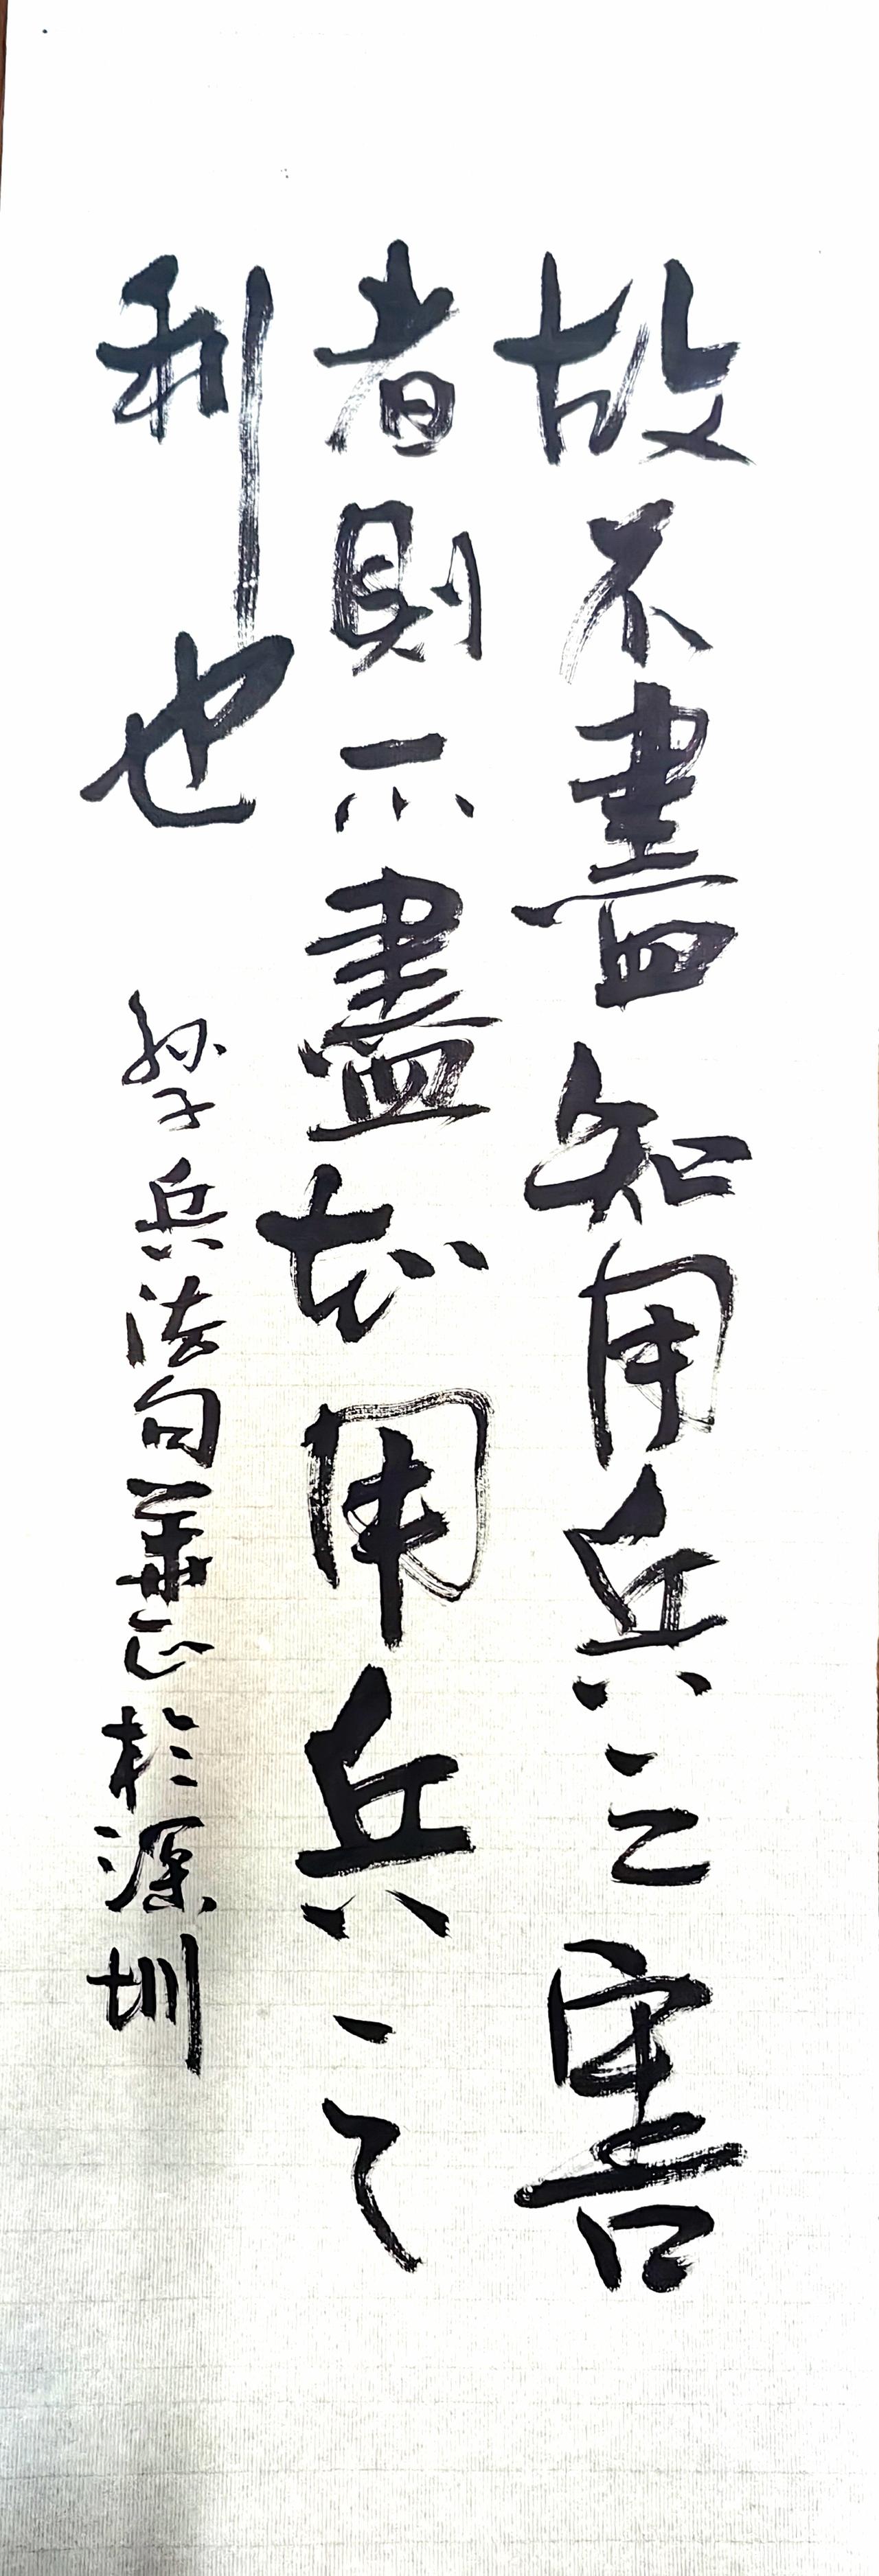 故不盡知用兵之害
者則不盡知用兵之
利也 孫子兵法句 華正於深圳